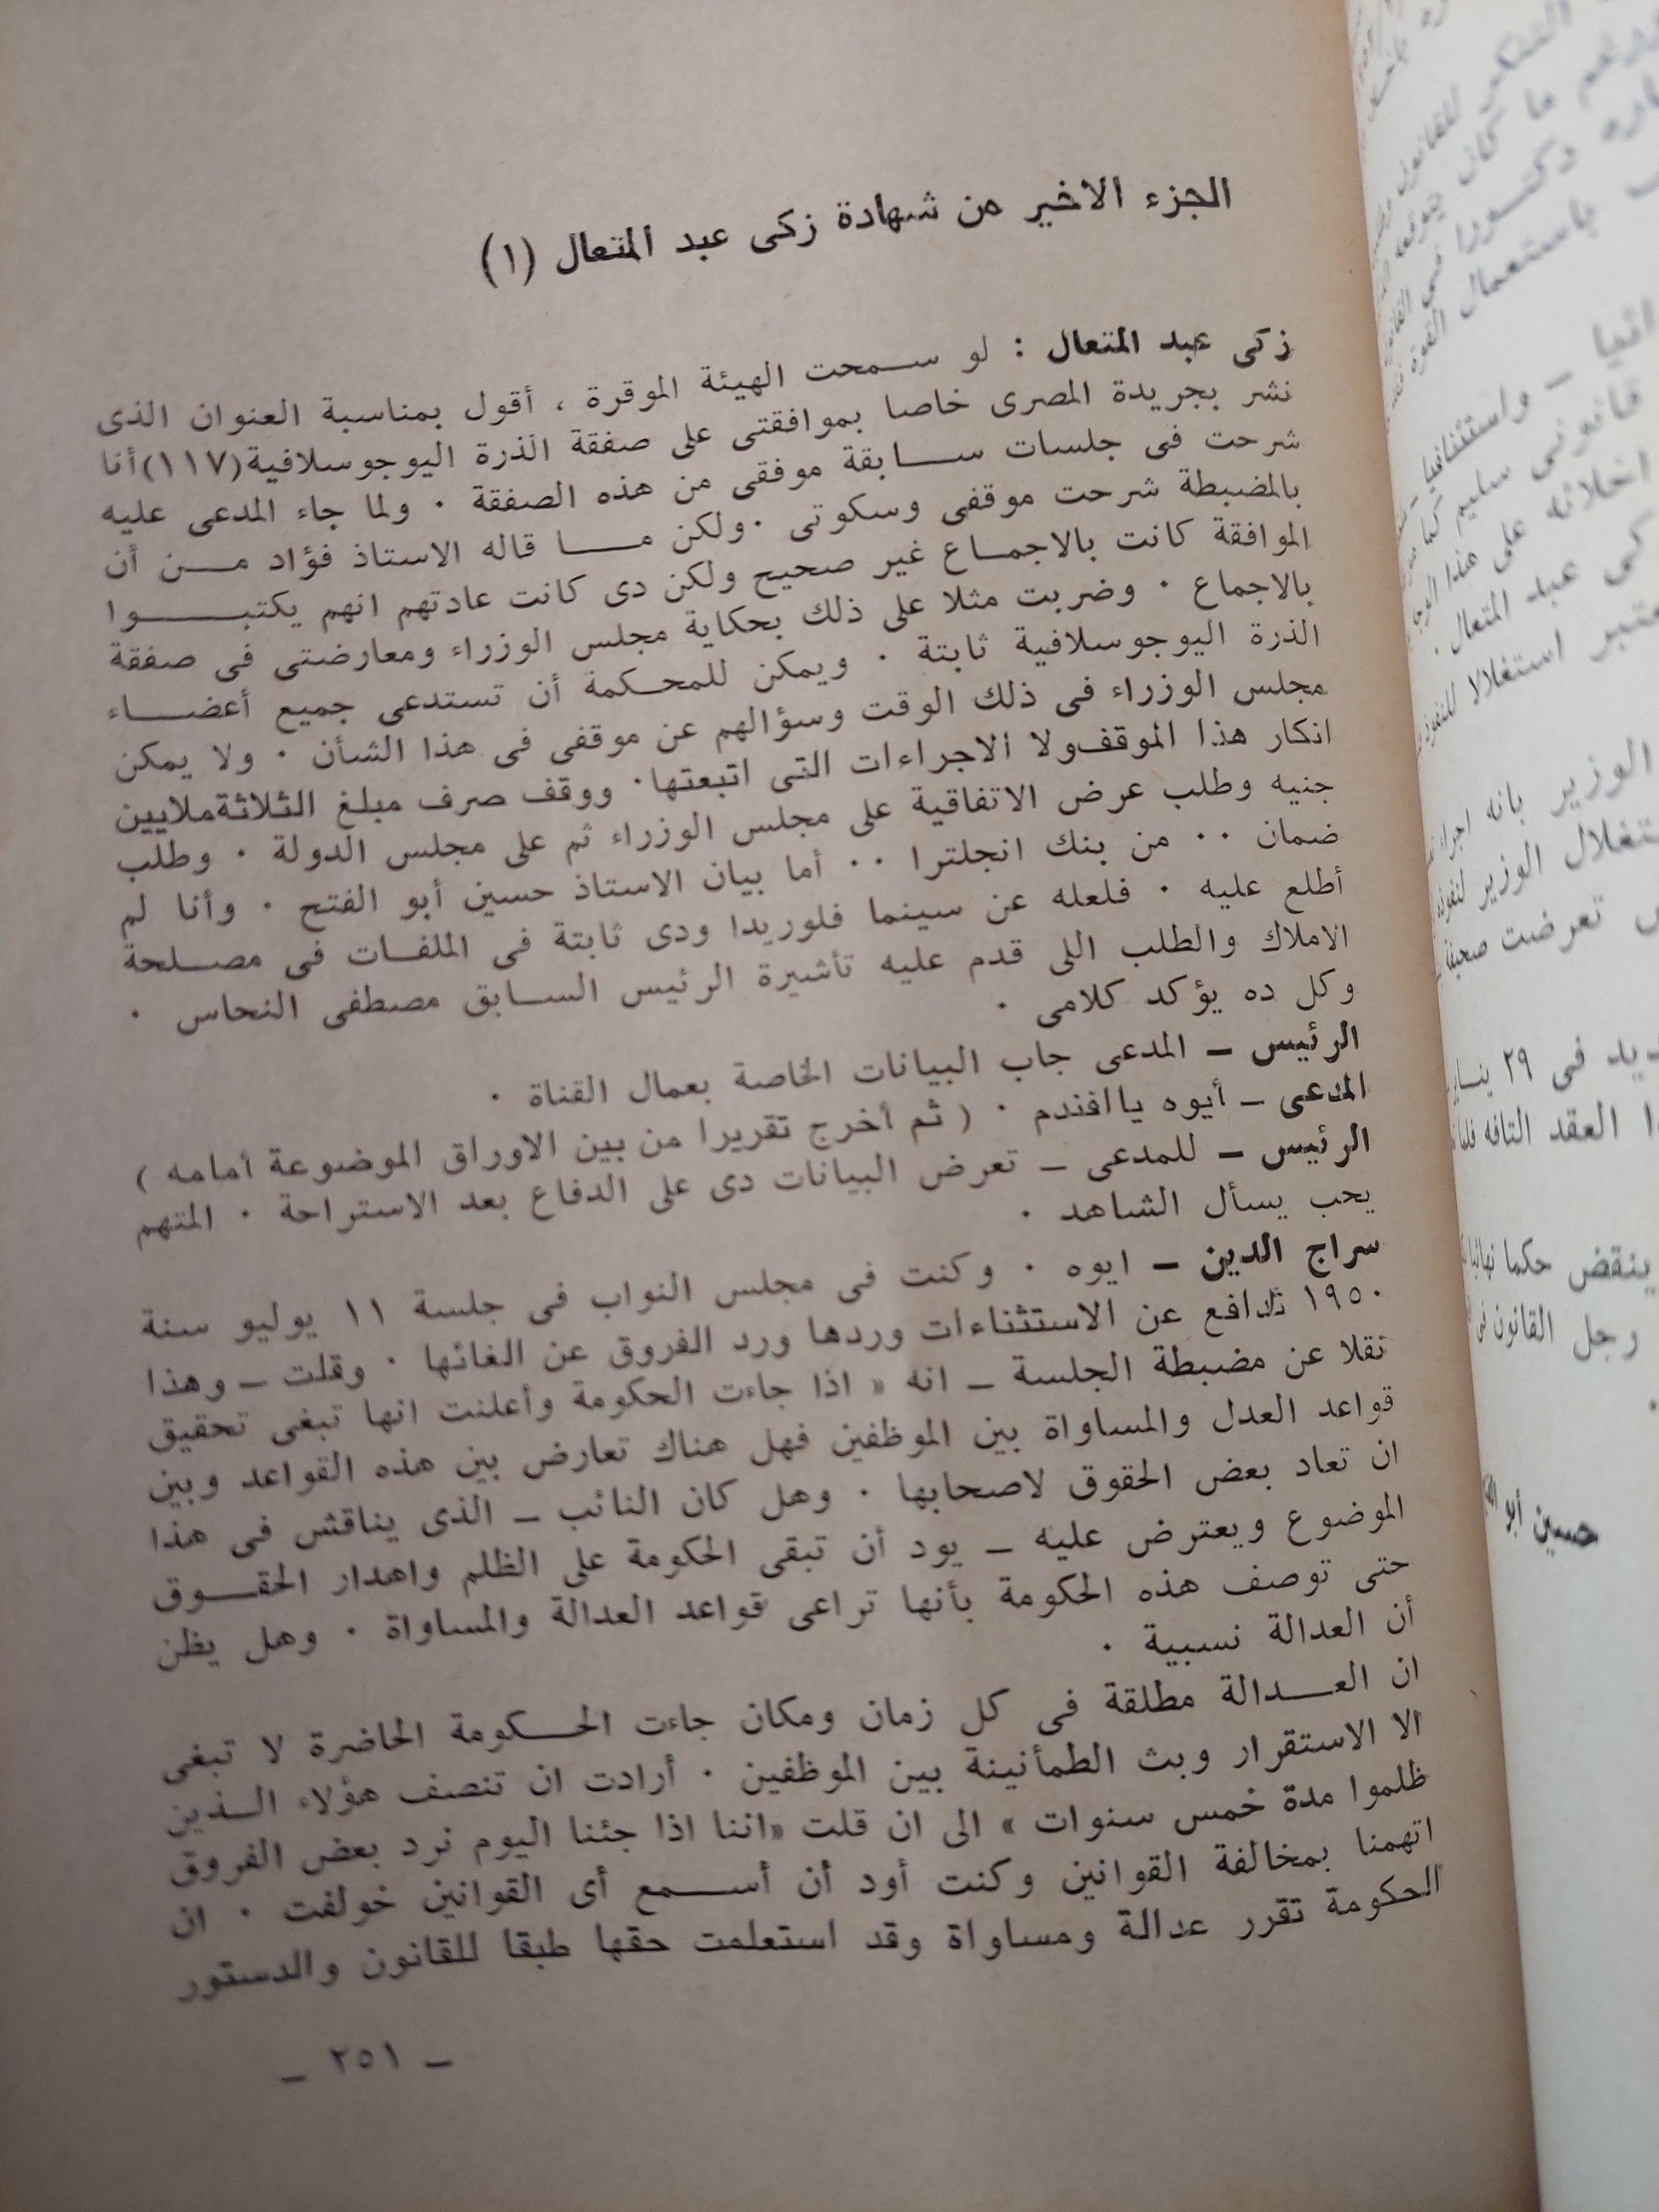 الجزء الاخير من شهادة زكى عبد المتعال (١)
زكى عبد المتعال : لو سمحت الهيئة الموقرة ، أقول بمناسبة العنوان الذى
نشر بجريدة المصرى خاصا بموافقتى على صفقة الذرة اليوجوسلافية (١١٧) أنا
شرحت فى جلسات سابقة موفقى من هذه الصفقة . ولما جاء المدعى عليه
بالمضبطة شرحت موقفى وسكوتى . ولكن ما قاله الاستاذ فؤاد من أن
الموافقة كانت بالاجماع غير صحيح ولكن دى كانت عادتهم انهم يكتبوا
بالاجماع . وضربت مثلا على ذلك بحكاية مجلس الوزراء ومعارضتى فى صفقة
الذرة اليوجوسلافية ثابتة . ويمكن للمحكمة أن تستدعى جميع أعضاء
مجلس الوزراء فى ذلك الوقت وسؤالهم عن موقفى فى هذا الشأن . ولا يمكن
انكار هذا الموقف ولا الاجراءات التى اتبعتها . ووقف صرف مبلغ الثلاثة ملايين
جنيه وطلب عرض الاتفاقية على مجلس الوزراء ثم على مجلس الدولة . وطلب
ضمان .. من بنك انجلترا .. أما بيان الاستاذ حسين أبو الفتح . وأنا لم
أطلع عليه . فلعله عن سينما فلوريدا ودى ثابتة فى الملفات فى مصلحة
الاملاك والطلب اللى قدم عليه تأشيرة الرئيس السابق مصطفى النحاس .
وكل ده يؤكد كلامى .
الرئيس – المدعى جاب البيانات الخاصة بعمال القناة .
المدعى – أيوه ياافندم . ( ثم أخرج تقريرا من بين الاوراق الموضوعة أمامه )
الرئيس – للمدعى – تعرض البيانات دى على الدفاع بعد الاستراحة . المتهم
يحب يسأل الشاهد .
سراج الدين – ايوه . وكنت فى مجلس النواب فى جلسة ١١ يوليو سنة
١٩٥٠ تدافع عن الاستثناءات وردها ورد الفروق عن الغائها . وقلت – وهذا
نقلا عن مضبطة الجلسة – انه « اذا جاءت الحكومة وأعلنت انها تبغى تحقيق
قواعد العدل والمساواة بين الموظفين فهل هناك تعارض بين هذه القواعد وبين
ان تعاد بعض الحقوق لاصحابها . وهل كان النائب – الذى يناقش فى هذا
الموضوع ويعترض عليه – يود أن تبقى الحكومة على الظلم واهدار الحقوق
حتى توصف هذه الحكومة بأنها تراعى قواعد العدالة والمساواة . وهل يظن
أن العدالة نسبية .
ان العدالة مطلقة فى كل زمان ومكان جاءت الحكومة الحاضرة لا تبغى
الا الاستقرار وبث الطمأنينة بين الموظفين . أرادت ان تنصف هؤلاء الذين
ظلموا مدة خمس سنوات » الى ان قلت «اننا اذا جئنا اليوم نرد بعض الفروق
اتهمنا بمخالفة القوانين وكنت أود أن أسمع أى القوانين خولفت . ان
الحكومة تقرر عدالة ومساواة وقد استعلمت حقها طبقا للقانون والدستور
– ٢٥١ –
باستعمال
كى عبد المتعال .
الوزير بانه
تعرضت
العقد التافه
ينقض حكما
رجل القانون
حسين أبو